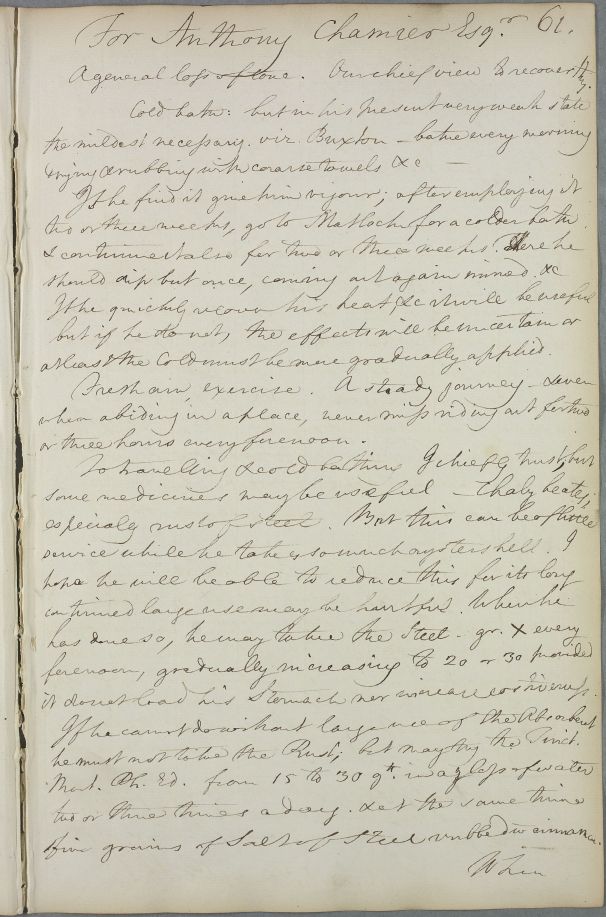 For Anthony Chamier Esqr. 61.
A general loss of tone. Our chief view to recover it by.
Cold bath: but in his present very weak state
the mildest necessary. viz. Buxton – bathe every morning
drying & rubbing with coarse towels &c –
If he find it give him vigour; after employing it
two or three weeks, go to Matlock for a colder bath
& continue it also for two or three weeks. There he
should dip but once, coming out again immed. &c
If he quickly recover his heat &c it will be useful
but if he do not, the effects will be uncertain or
at least the Cold must be more gradually applied.
Fresh air, exercise. A steady journey – & even
when abiding in a place, never miss riding out for two
or three hours every forenoon.
To travelling & cold bathing I chiefly trust, but
some medicines may be useful – Chalybeates;
especialy rust of steel. But this can be of little
service while he takes so much oystershell. I
hope he will be able to reduce this for its long
continued large use may be hurtful. When he
has done so, he may take the Steel – gr. X every
forenoon, gradually increasing to 20 or 30 provided
it do not load his Stomach nor increase costiveness.
If he cannot do without large use of the Absorbent
he must not take the Rust; but may try the Tinct.
Mart. Ph. Ed. from 15 to 30 gtt. in a glass of water
two or three times a day. & at the same time
five grains of Salt of Steel rubbed w cinnamon.
When